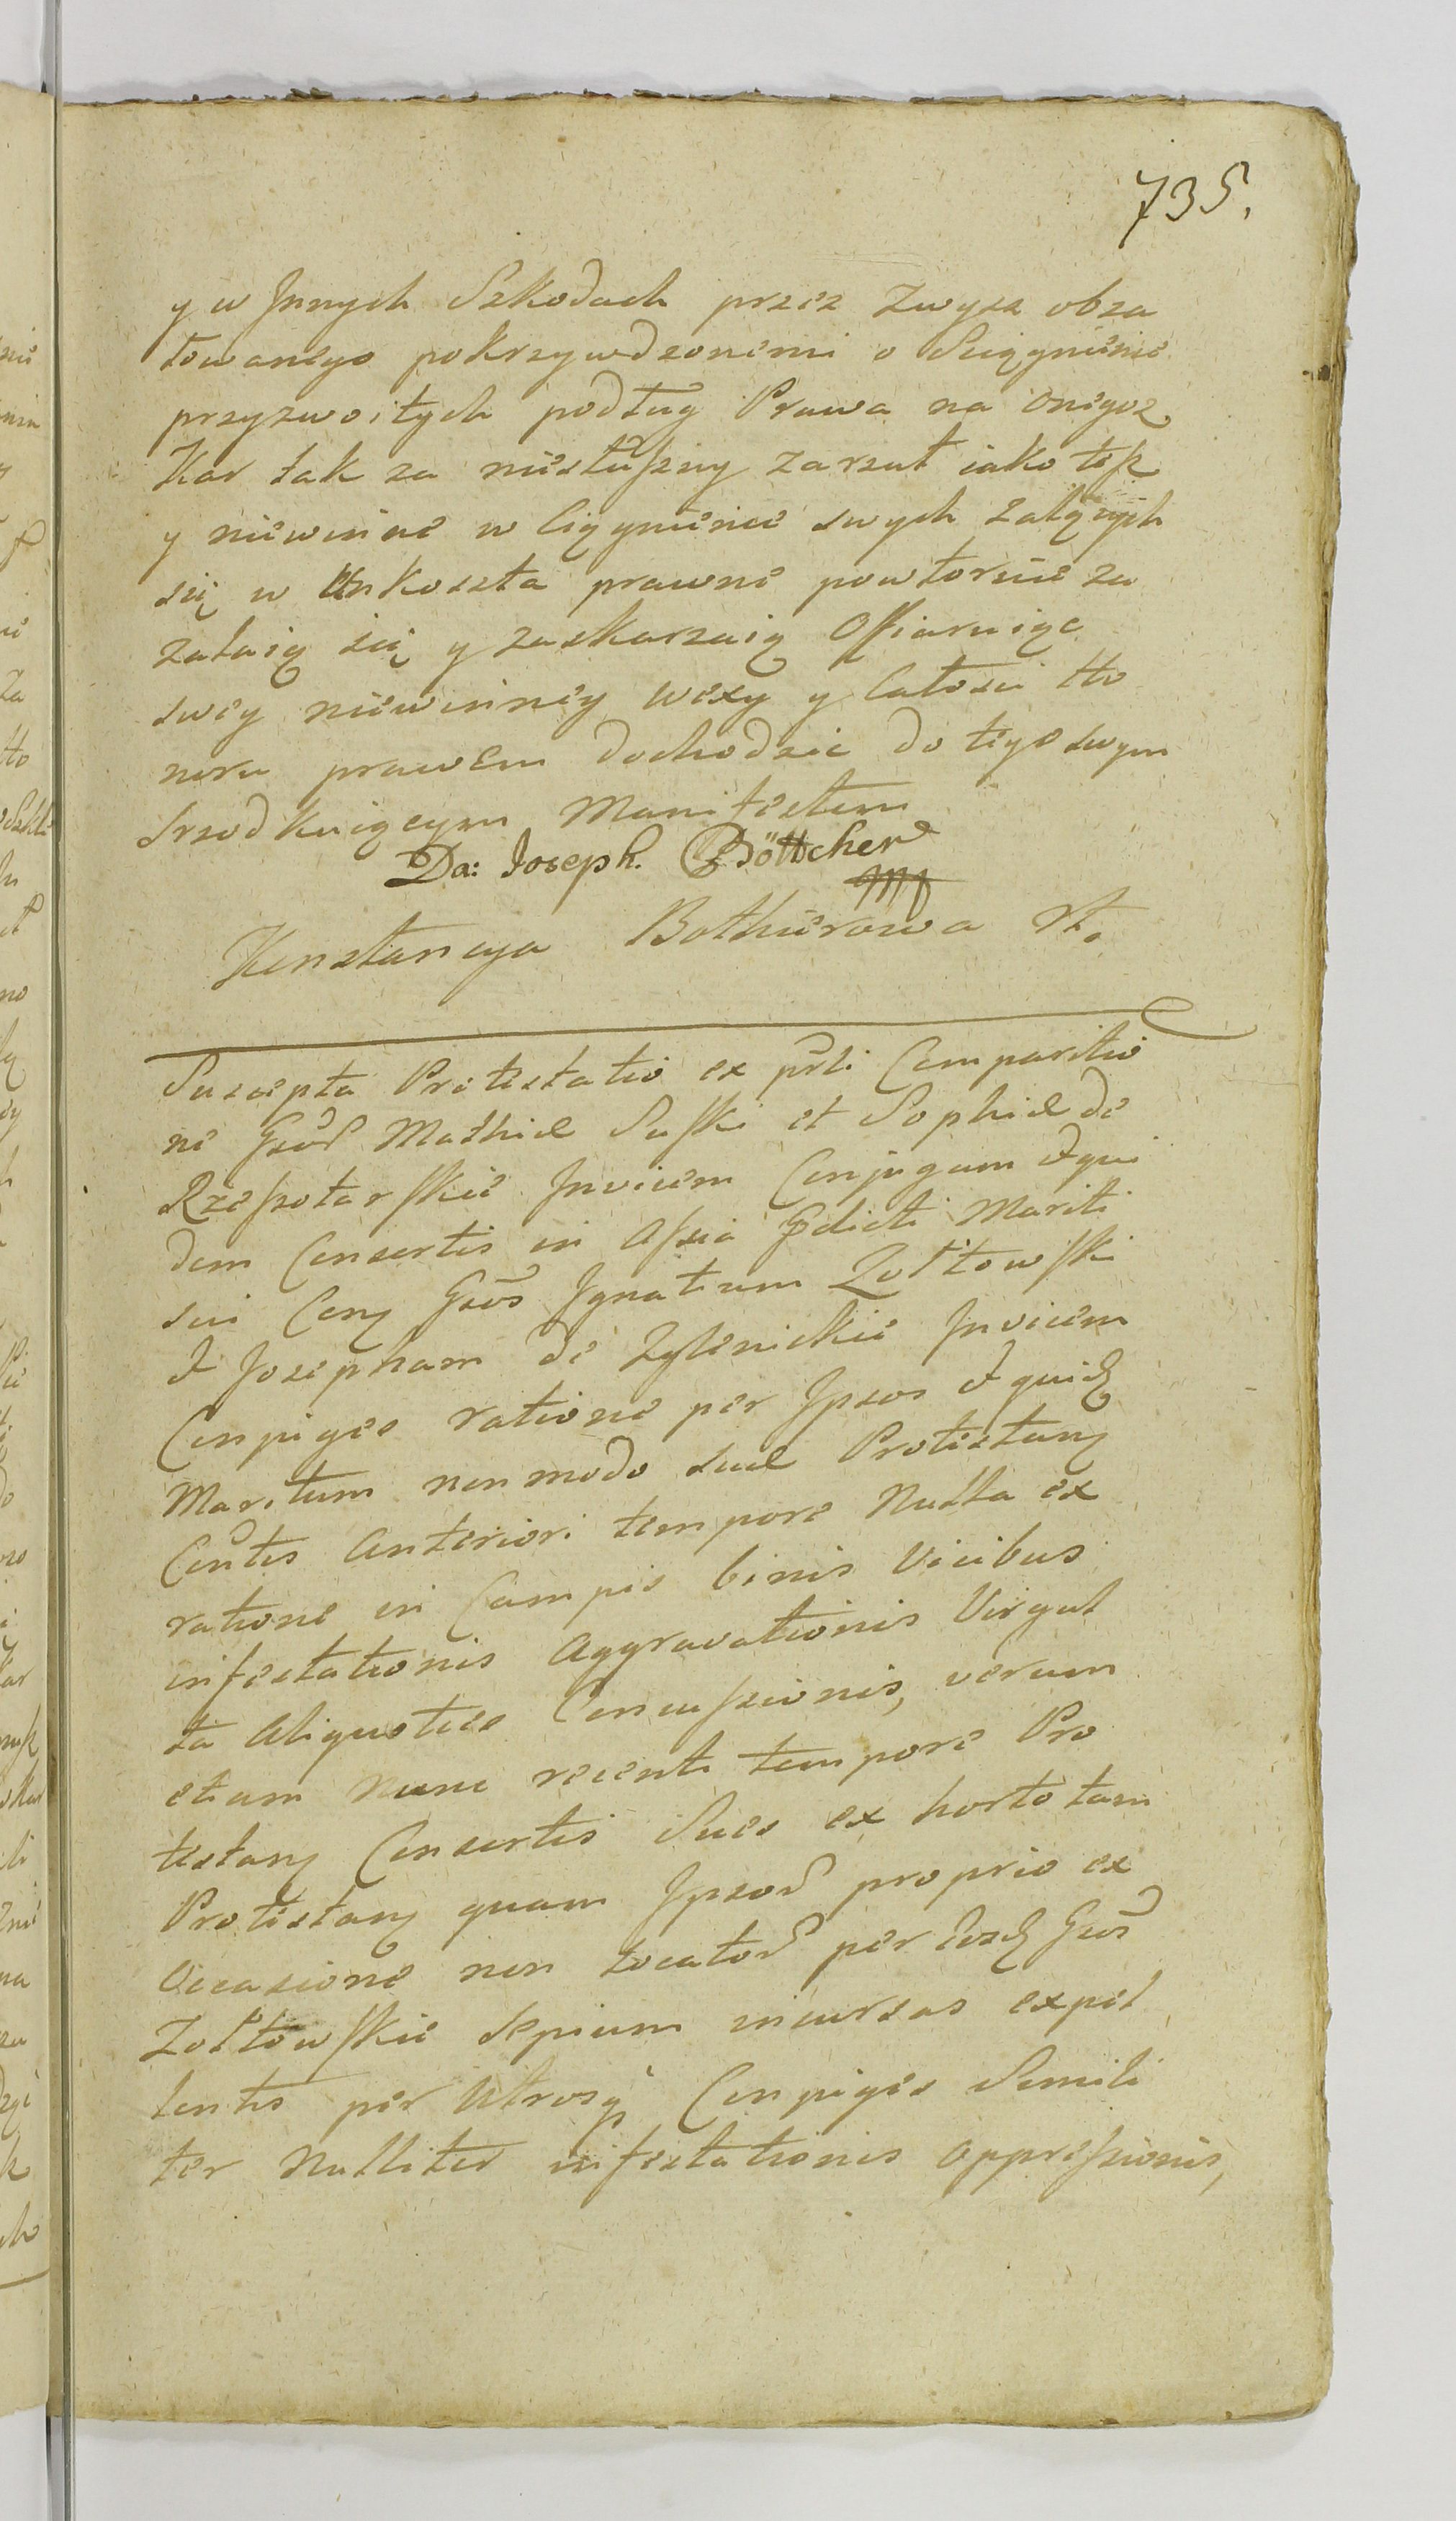 735.
y w Jnnych Szkodach przez Zwysz obza
łowanego pokrzywdzonemi o Sciągnienie
przyzwoitych podług Prawa na onegoz
Kar tak za niesłuszny zarzut iako tesz
y niewinne w Ciągnienie swych załących
się w Unkoszta prawne powtornie za
załaią się y zaskarzaią Offiaruiąc
swey niewinney wexy y Całosci Ho
noru prawem dochodzic do tego swym
Srzodkuiącym Manifestem
Da: Joseph. Böttcher
mp
Konstancya Bothierowa
Suscepta Protestatio ex prti Comparitio
ne Gsor Mathiæ Suski et Sophiæ de
Rzeszotarskie Jnvicem Conjugum & qui
dem Consortis in Assia Pdicti Mariti
sui Cong Gsos Jgnatium Zołtowski
& Josepham de Zglenickie Jnvicem
Conjuges ratione per Jpsos & quid
Maritum non modo suæ Protestang
Contis Anteriori tempore Nulla ex
ratione in Campis binis Vicibus
infestationis Aggravationis Virgul
ta Aliquoties Concussionis, verum
etiam Nunc recenti tempore Pro
testang Consortis Sues ex horto tam
Protestang quam Jpsor proprio ex
Occasione non locator per Eosd Gsos
Zołtowskie Sepium incursas expel
lentis per Utrosq Conjuges Simili
ter Nulliter infestationis oppressionis,